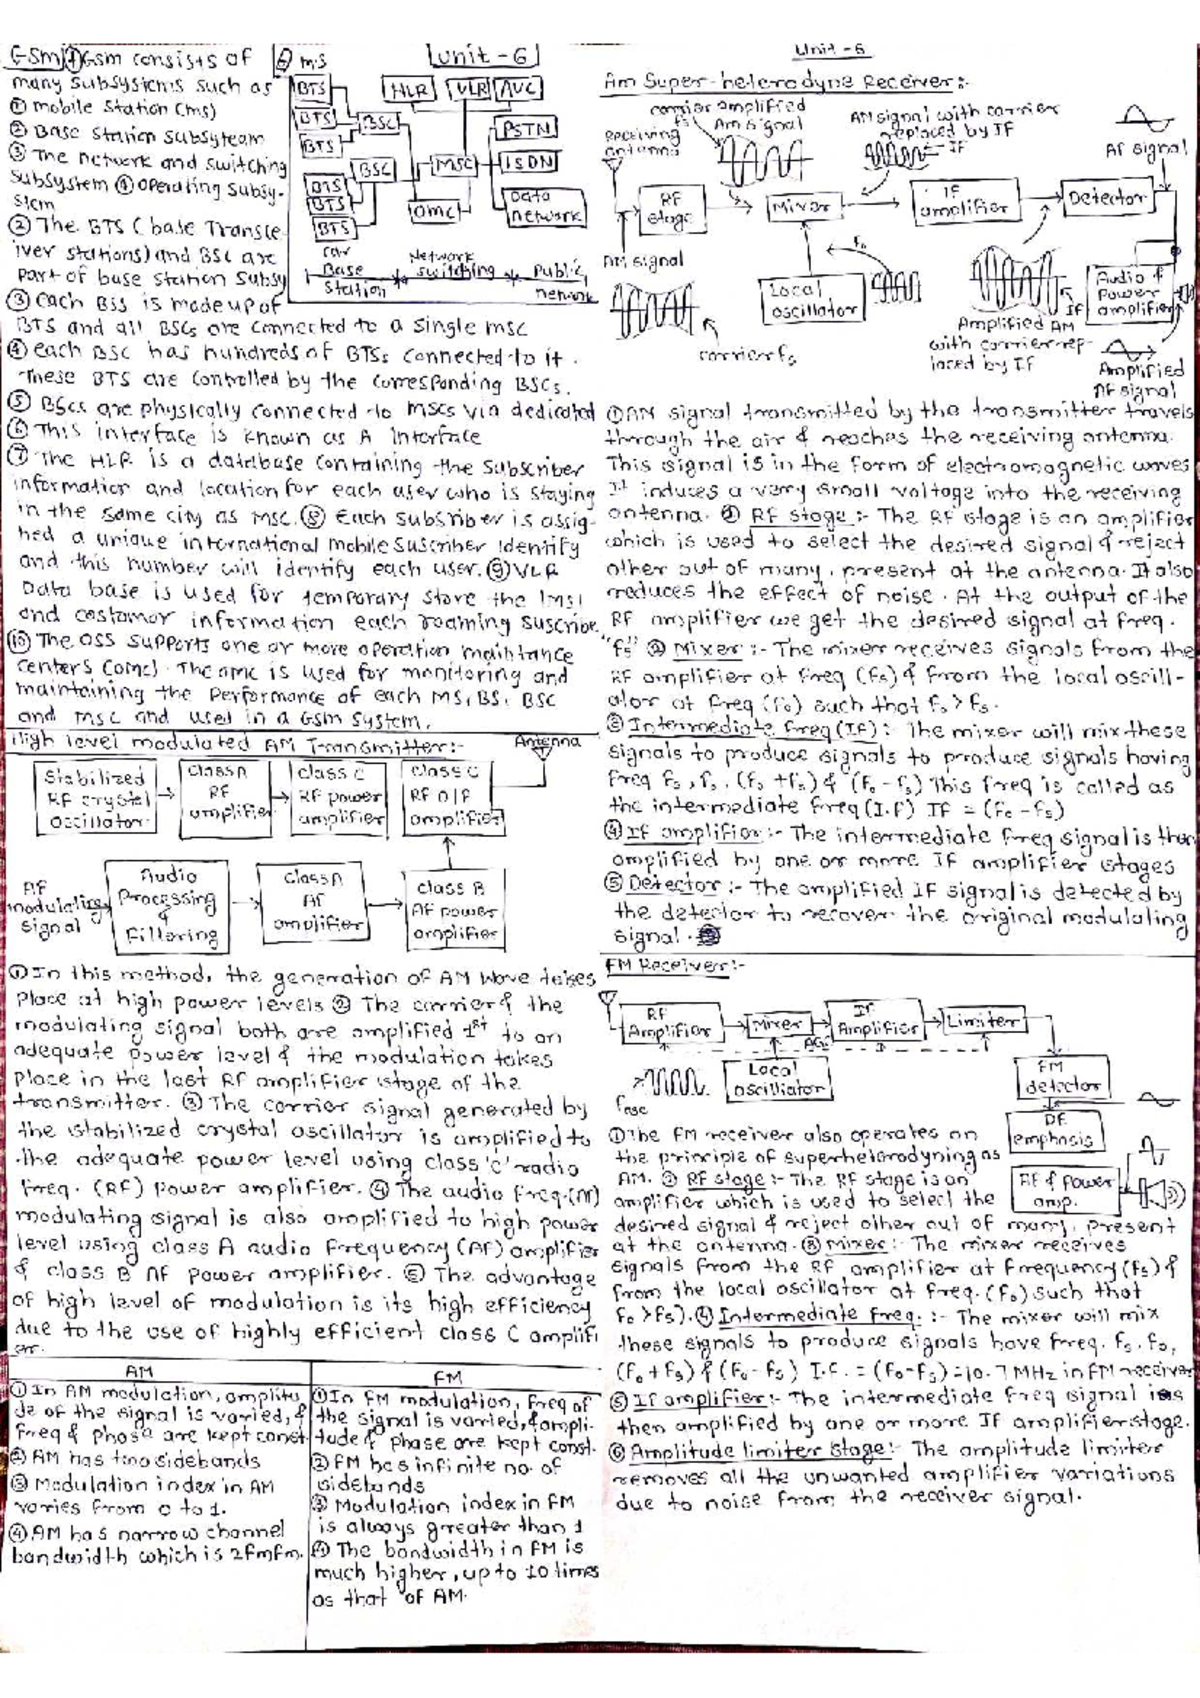 GSM ① GSM consists of
many subsystems such as
① mobile station (ms)
② Base station Subsyteam
③ The network and switching
subsystem ④ operating subsy-
stem
② The BTS ( base Transce-
iver stations) and BSC are
part of base station subsy
③ each BSS is made up of
BTS and all BSCs are connected to a single msc
④ each BSC has hundreds of BTSs connected to it.
These BTS are controlled by the corresponding BSCs.
⑤ BSCs are physically connected to MSCs via dedicated
⑥ This interface is known as A Interface
⑦ The HLR is a database containing the subscriber
information and location for each user who is staying
in the same city as MSC. ⑧ Each subscriber is assig-
ned a unique international mobile suscriber identify
and this number will identify each user. ⑨ VLR
Data base is used for temporary store the IMSI
and costomor information each roaming suscribe
⑩ The OSS supports one or more operation maintance
centers (OMC). The omc is used for monitoring and
maintaining the performance of each MS, BS, BSC
and msc and used in a GSM system.
M.S
Unit - 6
BTS
BTS
BTS
BTS
BTS
BTS
BSC
BSC
HLR
VLR
AUC
MSC
OMC
PSTN
ISDN
Data
network
Base
station
Network
switching
Public
network
High level modulated AM Transmitter:-
Antenna
Stabilized
RF crystal
Oscillator
Class A
RF
amplifier
class C
RF power
amplifier
class C
RF O/P
amplifier
AF
modulating
signal
Audio
Processing
&
Filtering
Class A
AF
amplifier
class B
AF power
amplifier
① In this method, the generation of AM wave takes
place at high power levels ② The carrier & the
modulating signal both are amplified 1st to an
adequate power level & the modulation takes
place in the last RF amplifier stage of the
transmitter. ③ The carrier signal generated by
the stabilized crystal oscillator is amplified to
the adequate power level using class 'C' radio
freq. (RF) power amplifier. ④ The audio freq.
modulating signal is also amplified to high power
level using class A audio frequency (AF) amplifier
& class B AF power amplifier. ⑤ The advantage
of high level of modulation is its high efficiency
due to the use of highly efficient class C amplifi
er.
AM
① In AM modulation, amplitu
de of the signal is varied, &
freq & phase are kept const.
② AM has two sidebands
③ Modulation index in AM
varies from 0 to 1.
④ AM has narrow channel
bandwidth which is 2fmfm.
FM
① In FM modulation, freq of
the signal is varied, & ampli-
tude & phase are kept const.
② FM has infinite no. of
sidebands
③ Modulation index in FM
is always greater than 1
④ The bandwidth in FM is
much higher, up to 10 times
as that of AM.
Unit - 6
Am Super-heterodyne Receiver:-
carrier amplified
fs Am signal
AM signal with carrier
replaced by IF
IF
AF signal
Receiving
antenna
RF
stage
Mixer
IF
amplifier
Detector
AM signal
fo
Local
oscillator
Audio &
Power
amplifier
IF
Amplified AM
with carrier rep-
laced by IF
carrier fs
Amplified
AF signal
① AM signal transmitted by the transmitter travels
through the air & reaches the receiving antenna.
This signal is in the form of electromagnetic waves
It induces a very small voltage into the receiving
antenna. ② RF stage :- The RF stage is an amplifier
which is used to select the desired signal & reject
other out of many, present at the antenna. It also
reduces the effect of noise. At the output of the
RF amplifier we get the desired signal at freq.
"fs" ② Mixer :- The mixer receives signals from the
RF amplifier at freq (fs) & from the local oscill-
ator at freq (fo) such that fo > fs.
③ Intermediate freq (If) : The mixer will mix these
signals to produce signals to produce signals having
freq fs, fo, (fo + fs) & (fo - fs) This freq is called as
the intermediate freq (I.f) IF = (fo - fs)
④ If amplifier :- The intermediate freq signal is then
amplified by one or more IF amplifier stages
⑤ Detector :- The amplified IF signal is detected by
the detector to recover the original modulating
signal.
FM Receiver:-
RF
Amplifier
Mixer
If
Amplifier
Limiter
AGC
Local
oscilliator
FM
detector
DE
emphosis
AF & power
amp.
① The FM receiver also operates on
the principle of superheterodyning as
AM. ② RF stage :- The RF stage is an
amplifier which is used to select the
desired signal & reject other out of many, present
at the antenna. ③ Mixer :- The mixer receives
signals from the RF amplifier at frequency (fs) &
from the local oscillator at freq. (fo) such that
fo > fs). ④ Intermediate freq. :- The mixer will mix
these signals to produce signals have freq. fs, fo,
(fo + fs) & (fo - fs) I.f. = (fo - fs) = 10.7 MHz in FM receiver
⑤ If amplifier :- The intermediate freq signal is
then amplified by one or more IF amplifier stage.
⑥ Amplitude limiter stage :- The amplitude limiter
removes all the unwanted amplifier variations
due to noise from the receiver signal.